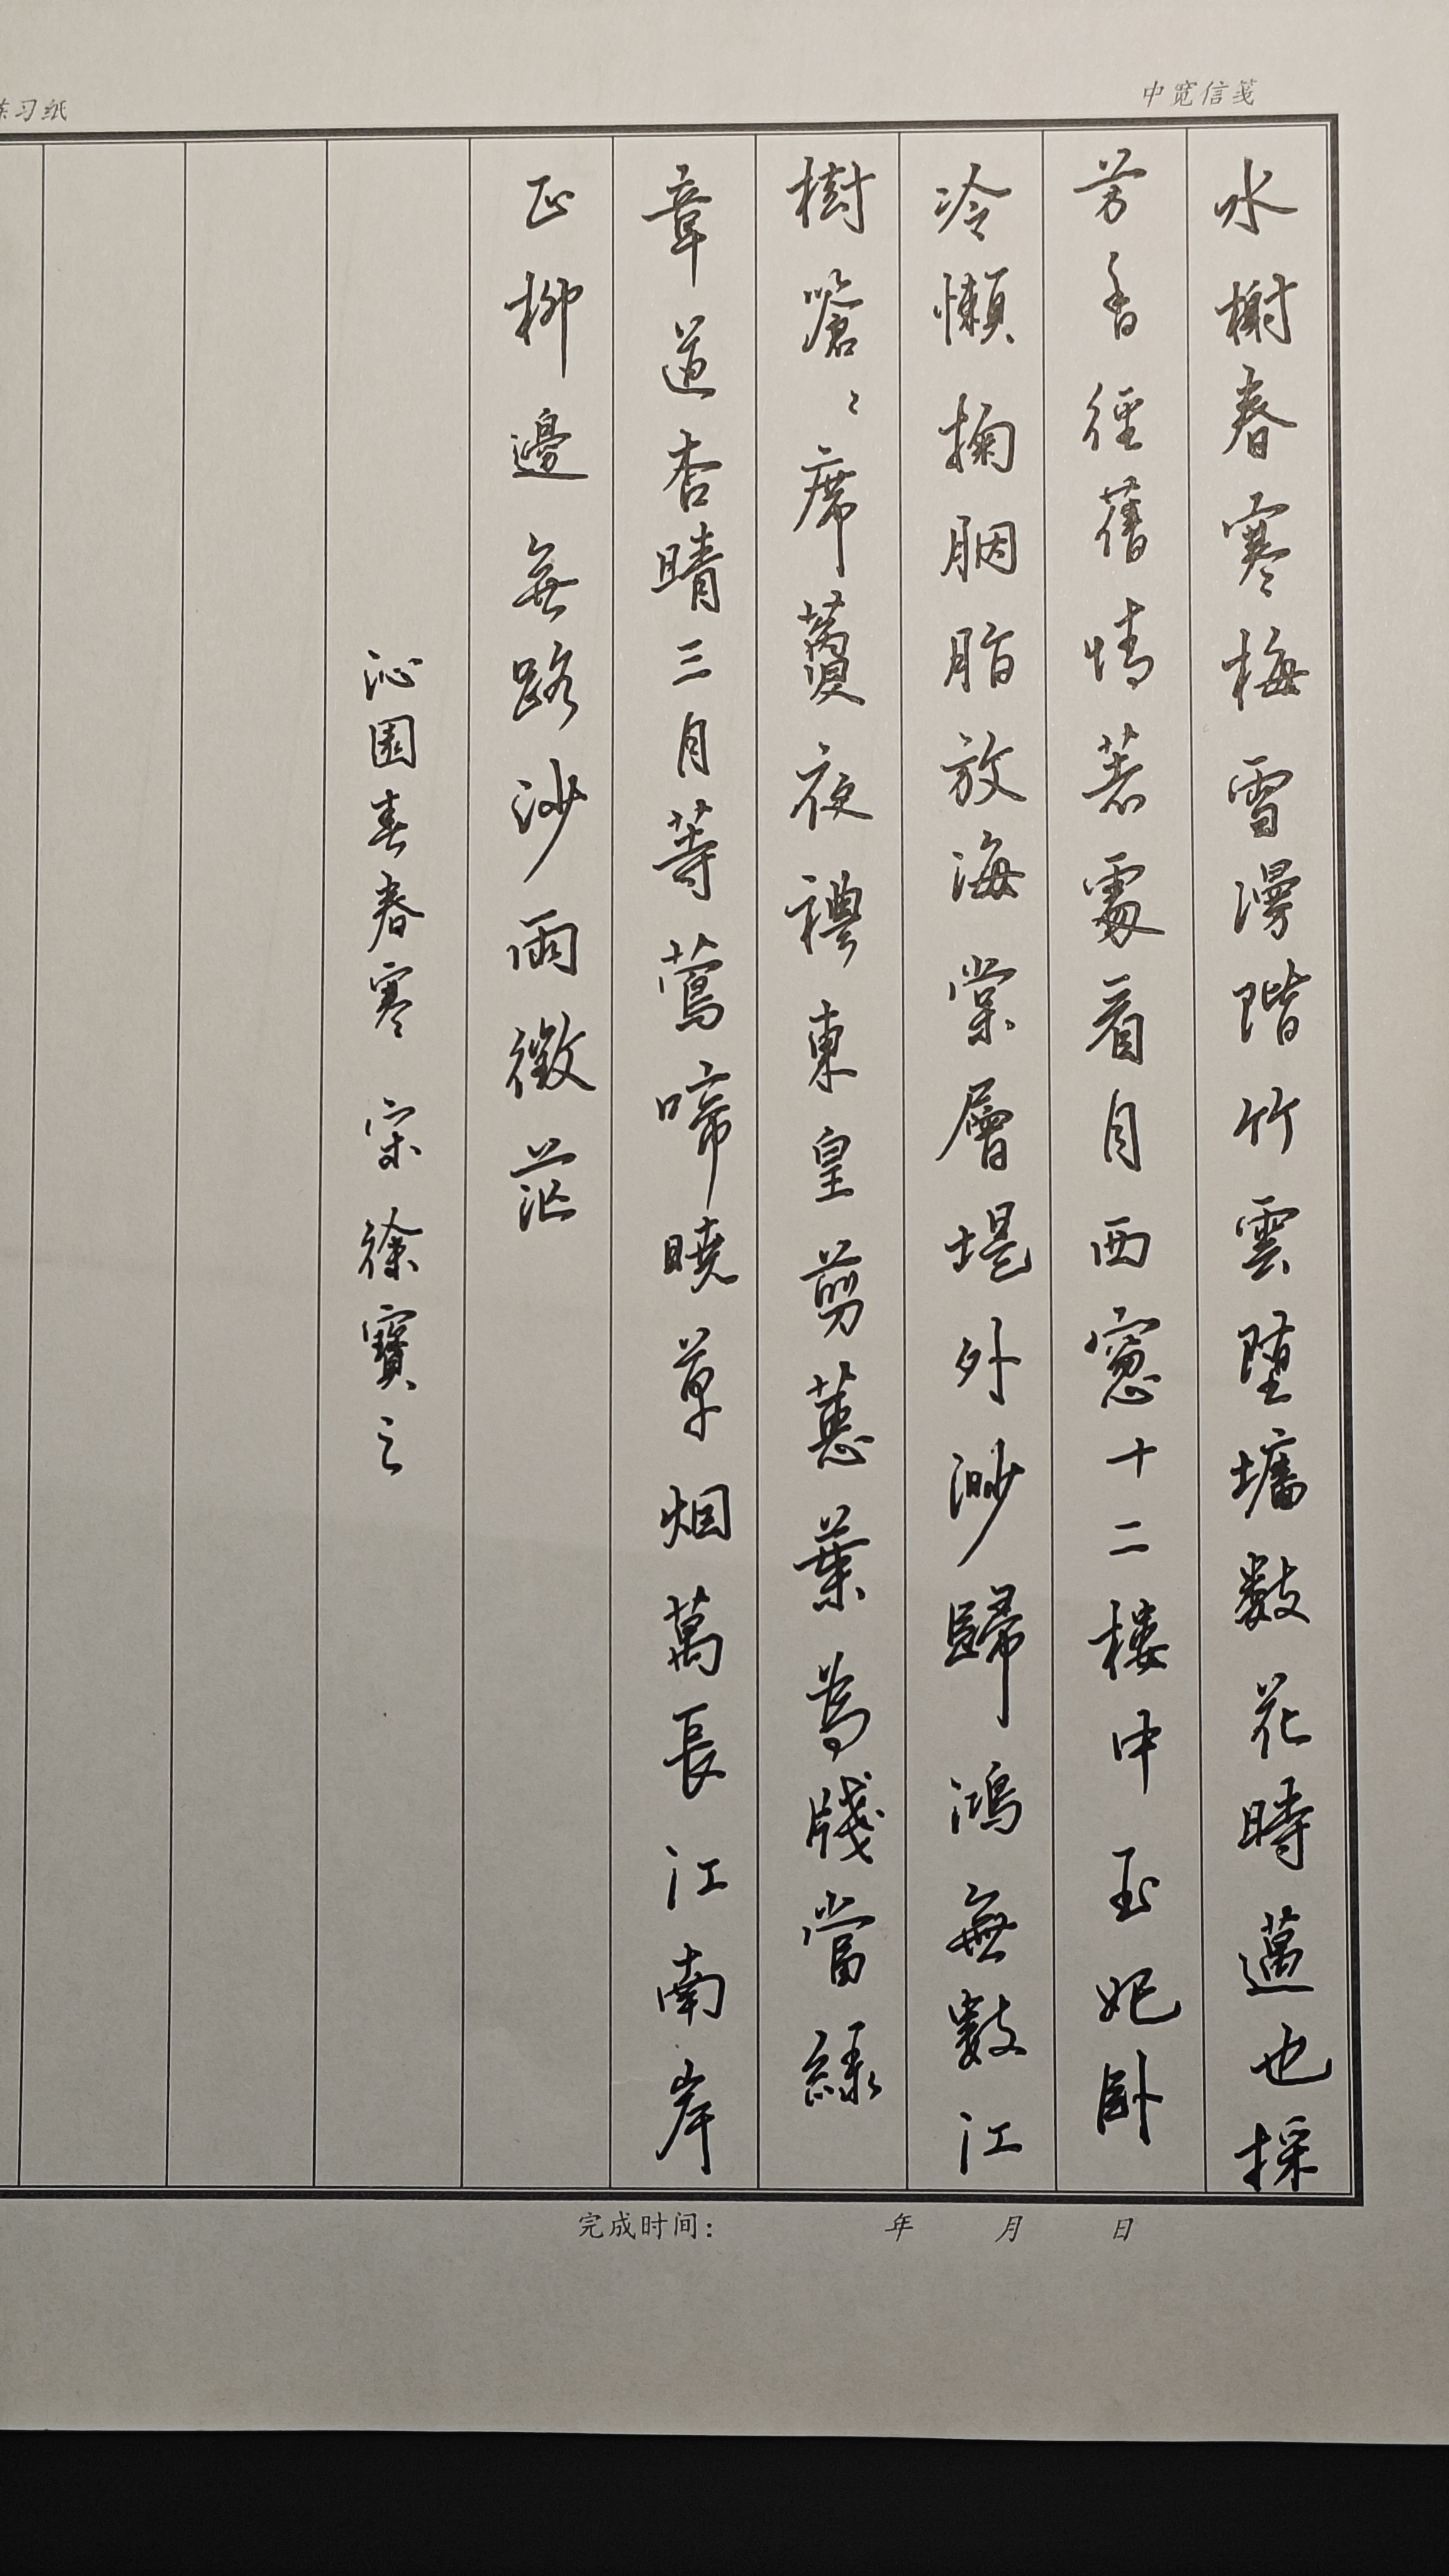 中宽信笺
练习纸
水榭春寒梅雪漫階竹雲墮墻數花時邁也採
芳香徑舊情若處看月西窗十二樓中玉妃臥
冷懶掬胭脂放海棠層堤外渺歸鴻無數江
樹蒼〻席夜禮東皇剪蕙葉為牋當綠
章道杏晴三月等鶯啼曉草烟萬長江南岸
正柳邊無路沙雨微茫
沁園春春寒 宋 徐寶之
完成时间： 年 月 日